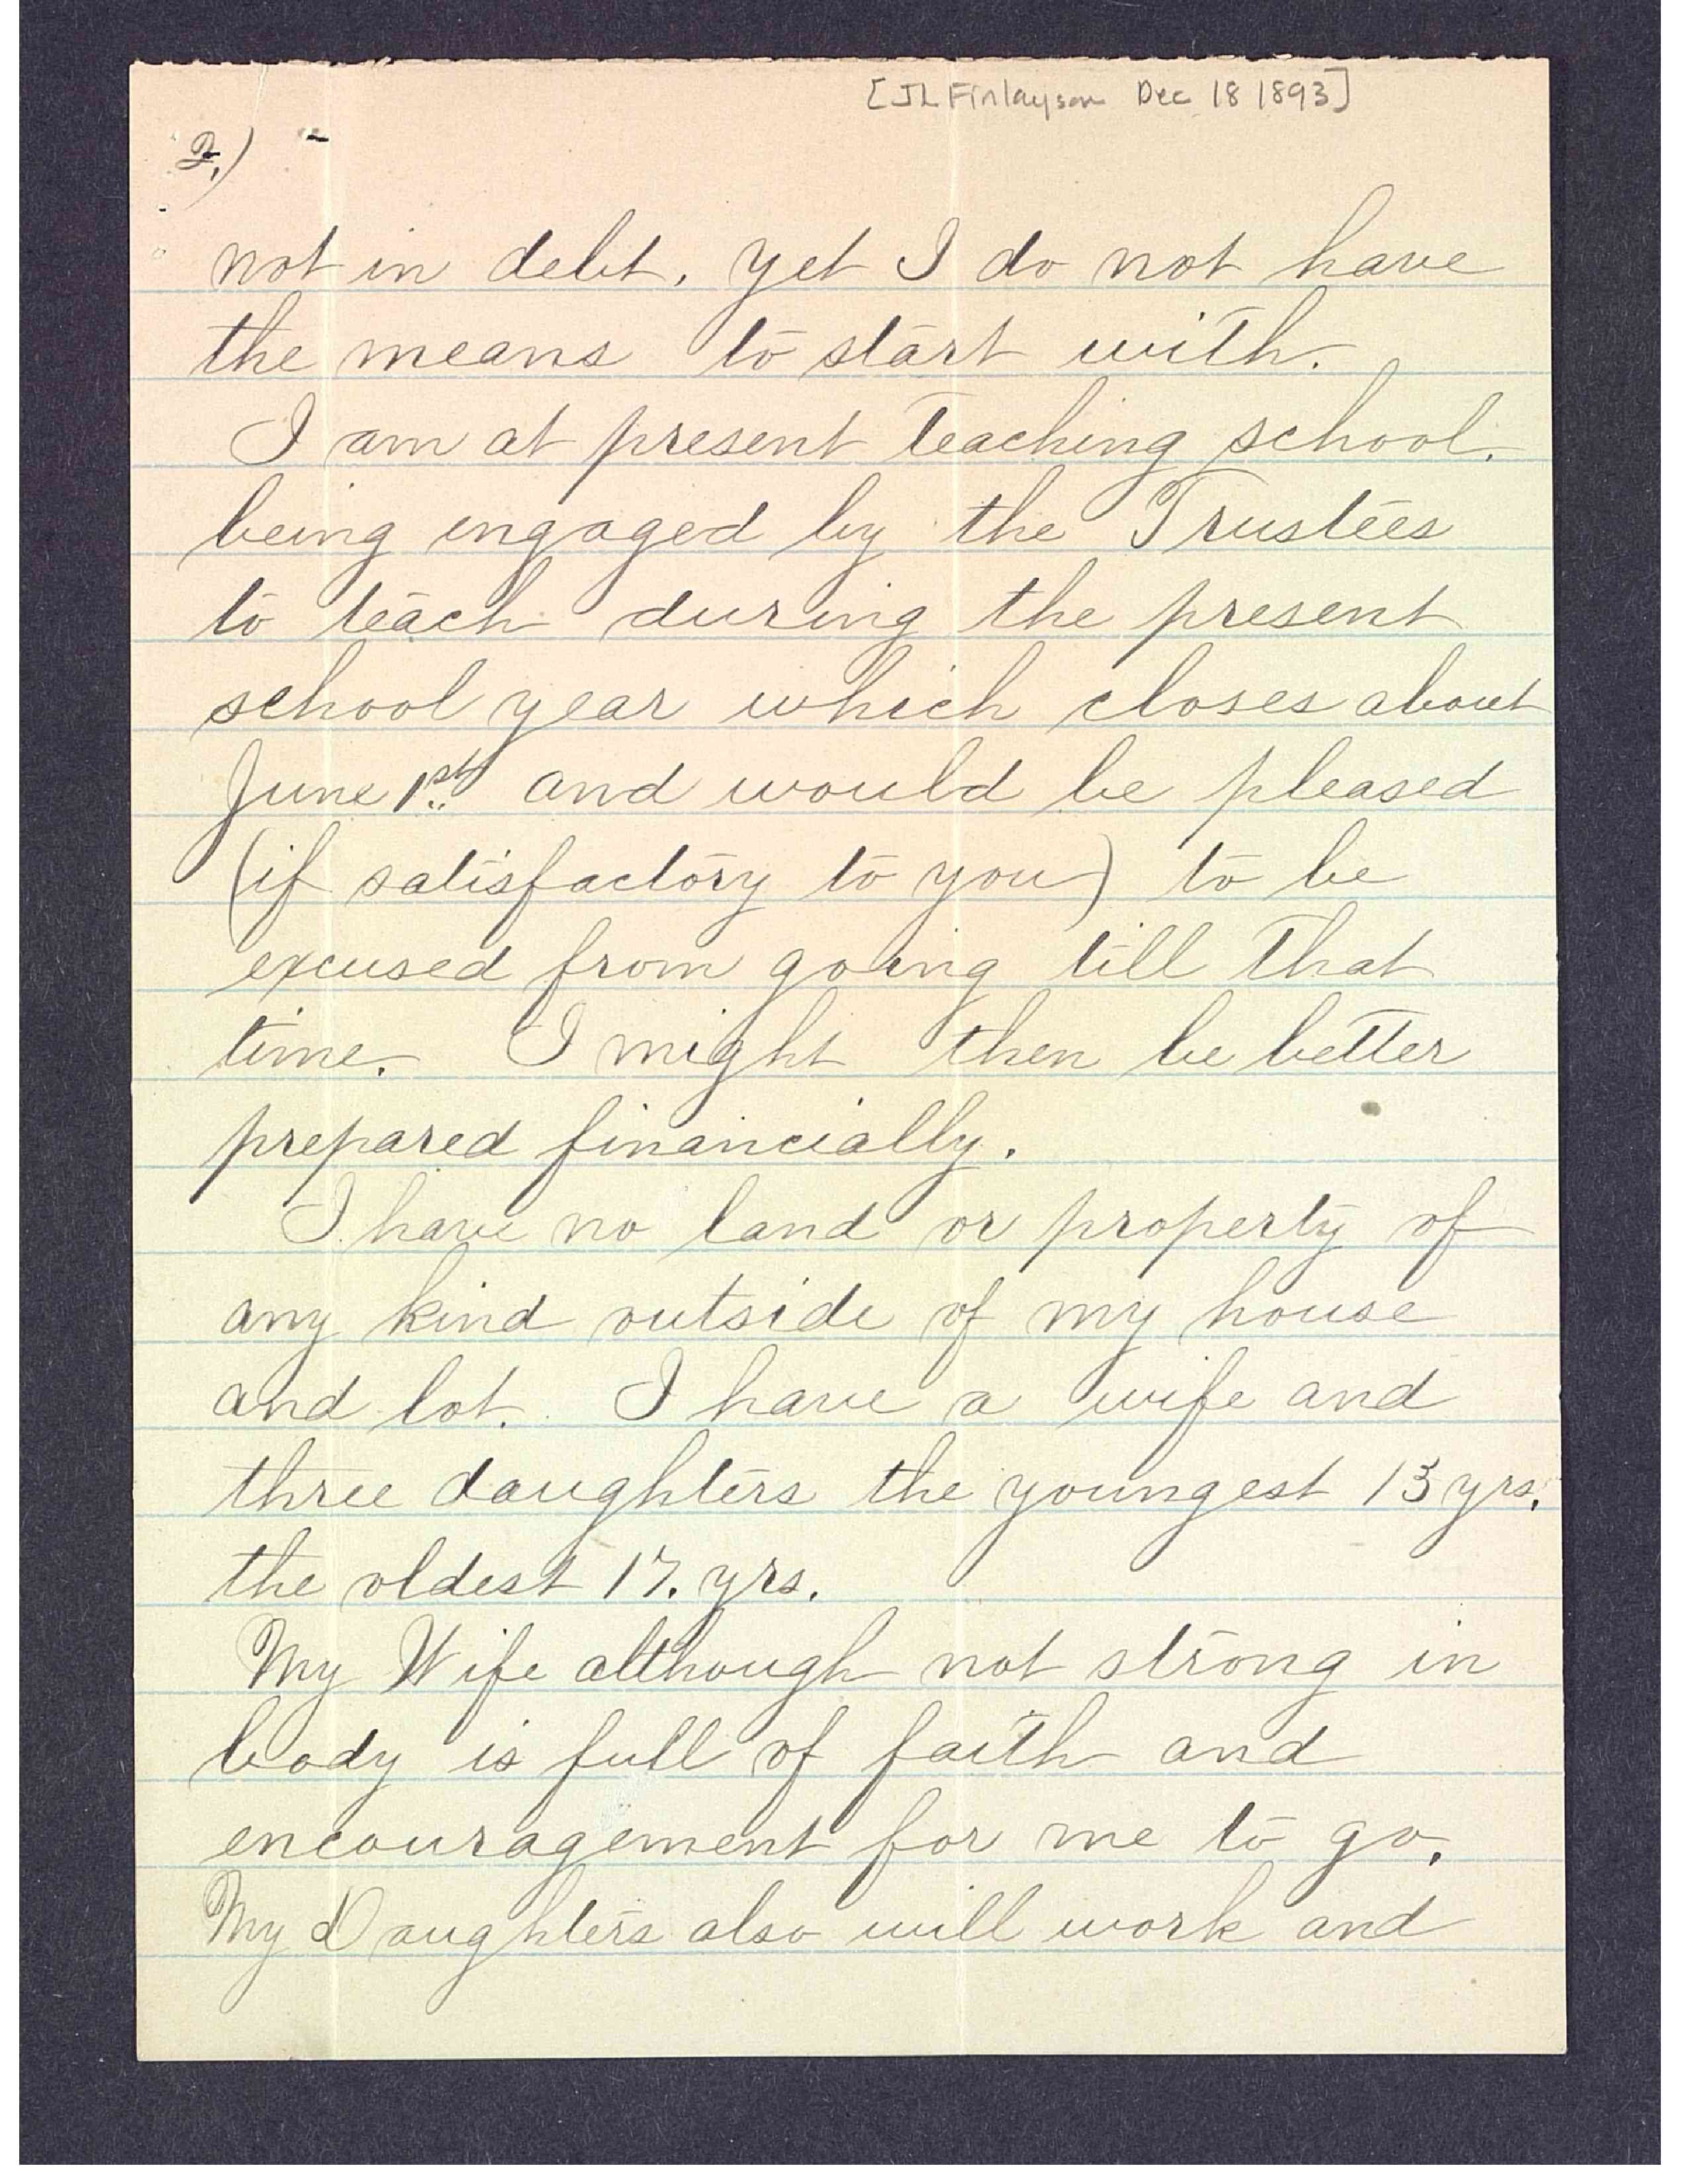 [JL Finlayson Dec 18 1893]
2.)
not in debt, yet I do not have
the means to start with.
I am at present teaching school.
being engaged by the Trustees
to teach during the present
school year which closes about
June 1st and would be pleased
(if satisfactory to you) to be
excused from going till that
time. I might then be better
prepared financially.
I have no land or property of
any kind outside of my house
and lot. I have a wife and
three daughters the youngest 13 yrs.
the oldest 17. yrs.
My Wife although not strong in
body is full of faith and
encouragement for me to go.
My Daughters also will work and